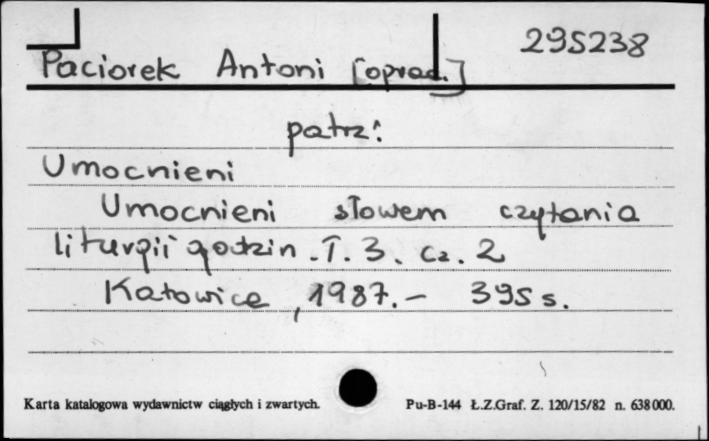 295238
Paciorek Antoni [oprac.]
patrz:
Umocnieni
Umocnieni słowem czytania
liturgii godzin. T. 3. cz. 2
Katowice, 1987. – 395 s.
Karta katalogowa wydawnictw ciągłych i zwartych. Pu-B-144 Ł.Z.Graf. Z. 120/15/82 n. 638000.